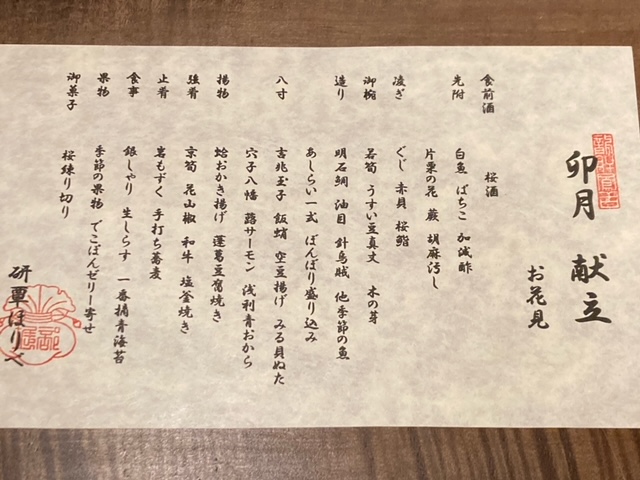 卯月 献立
お花見
食前酒 桜酒
先附 白魚 ばちこ 加減酢
片栗の花 蕨 胡麻汚し
凌ぎ ぐじ 赤貝 桜鮨
御椀 若筍 うすい豆真丈 木の芽
造り 明石鯛 油目 針烏賊 他季節の魚
あしらい一式 ぼんぼり盛り込み
八寸 吉兆玉子 飯蛸 空豆揚げ みる貝ぬた
穴子八幡 蕗サーモン 浅利青おから
揚物 蛤おかき揚げ 蓬葛豆腐焼き
強肴 京筍 花山椒 和牛 塩釜焼き
止肴 岩もずく 手打ち蕎麦
食事 銀しゃり 生しらす 一番摘青海苔
果物 季節の果物 でこぽんゼリー寄せ
御菓子 桜練り切り
研覃ほりべ